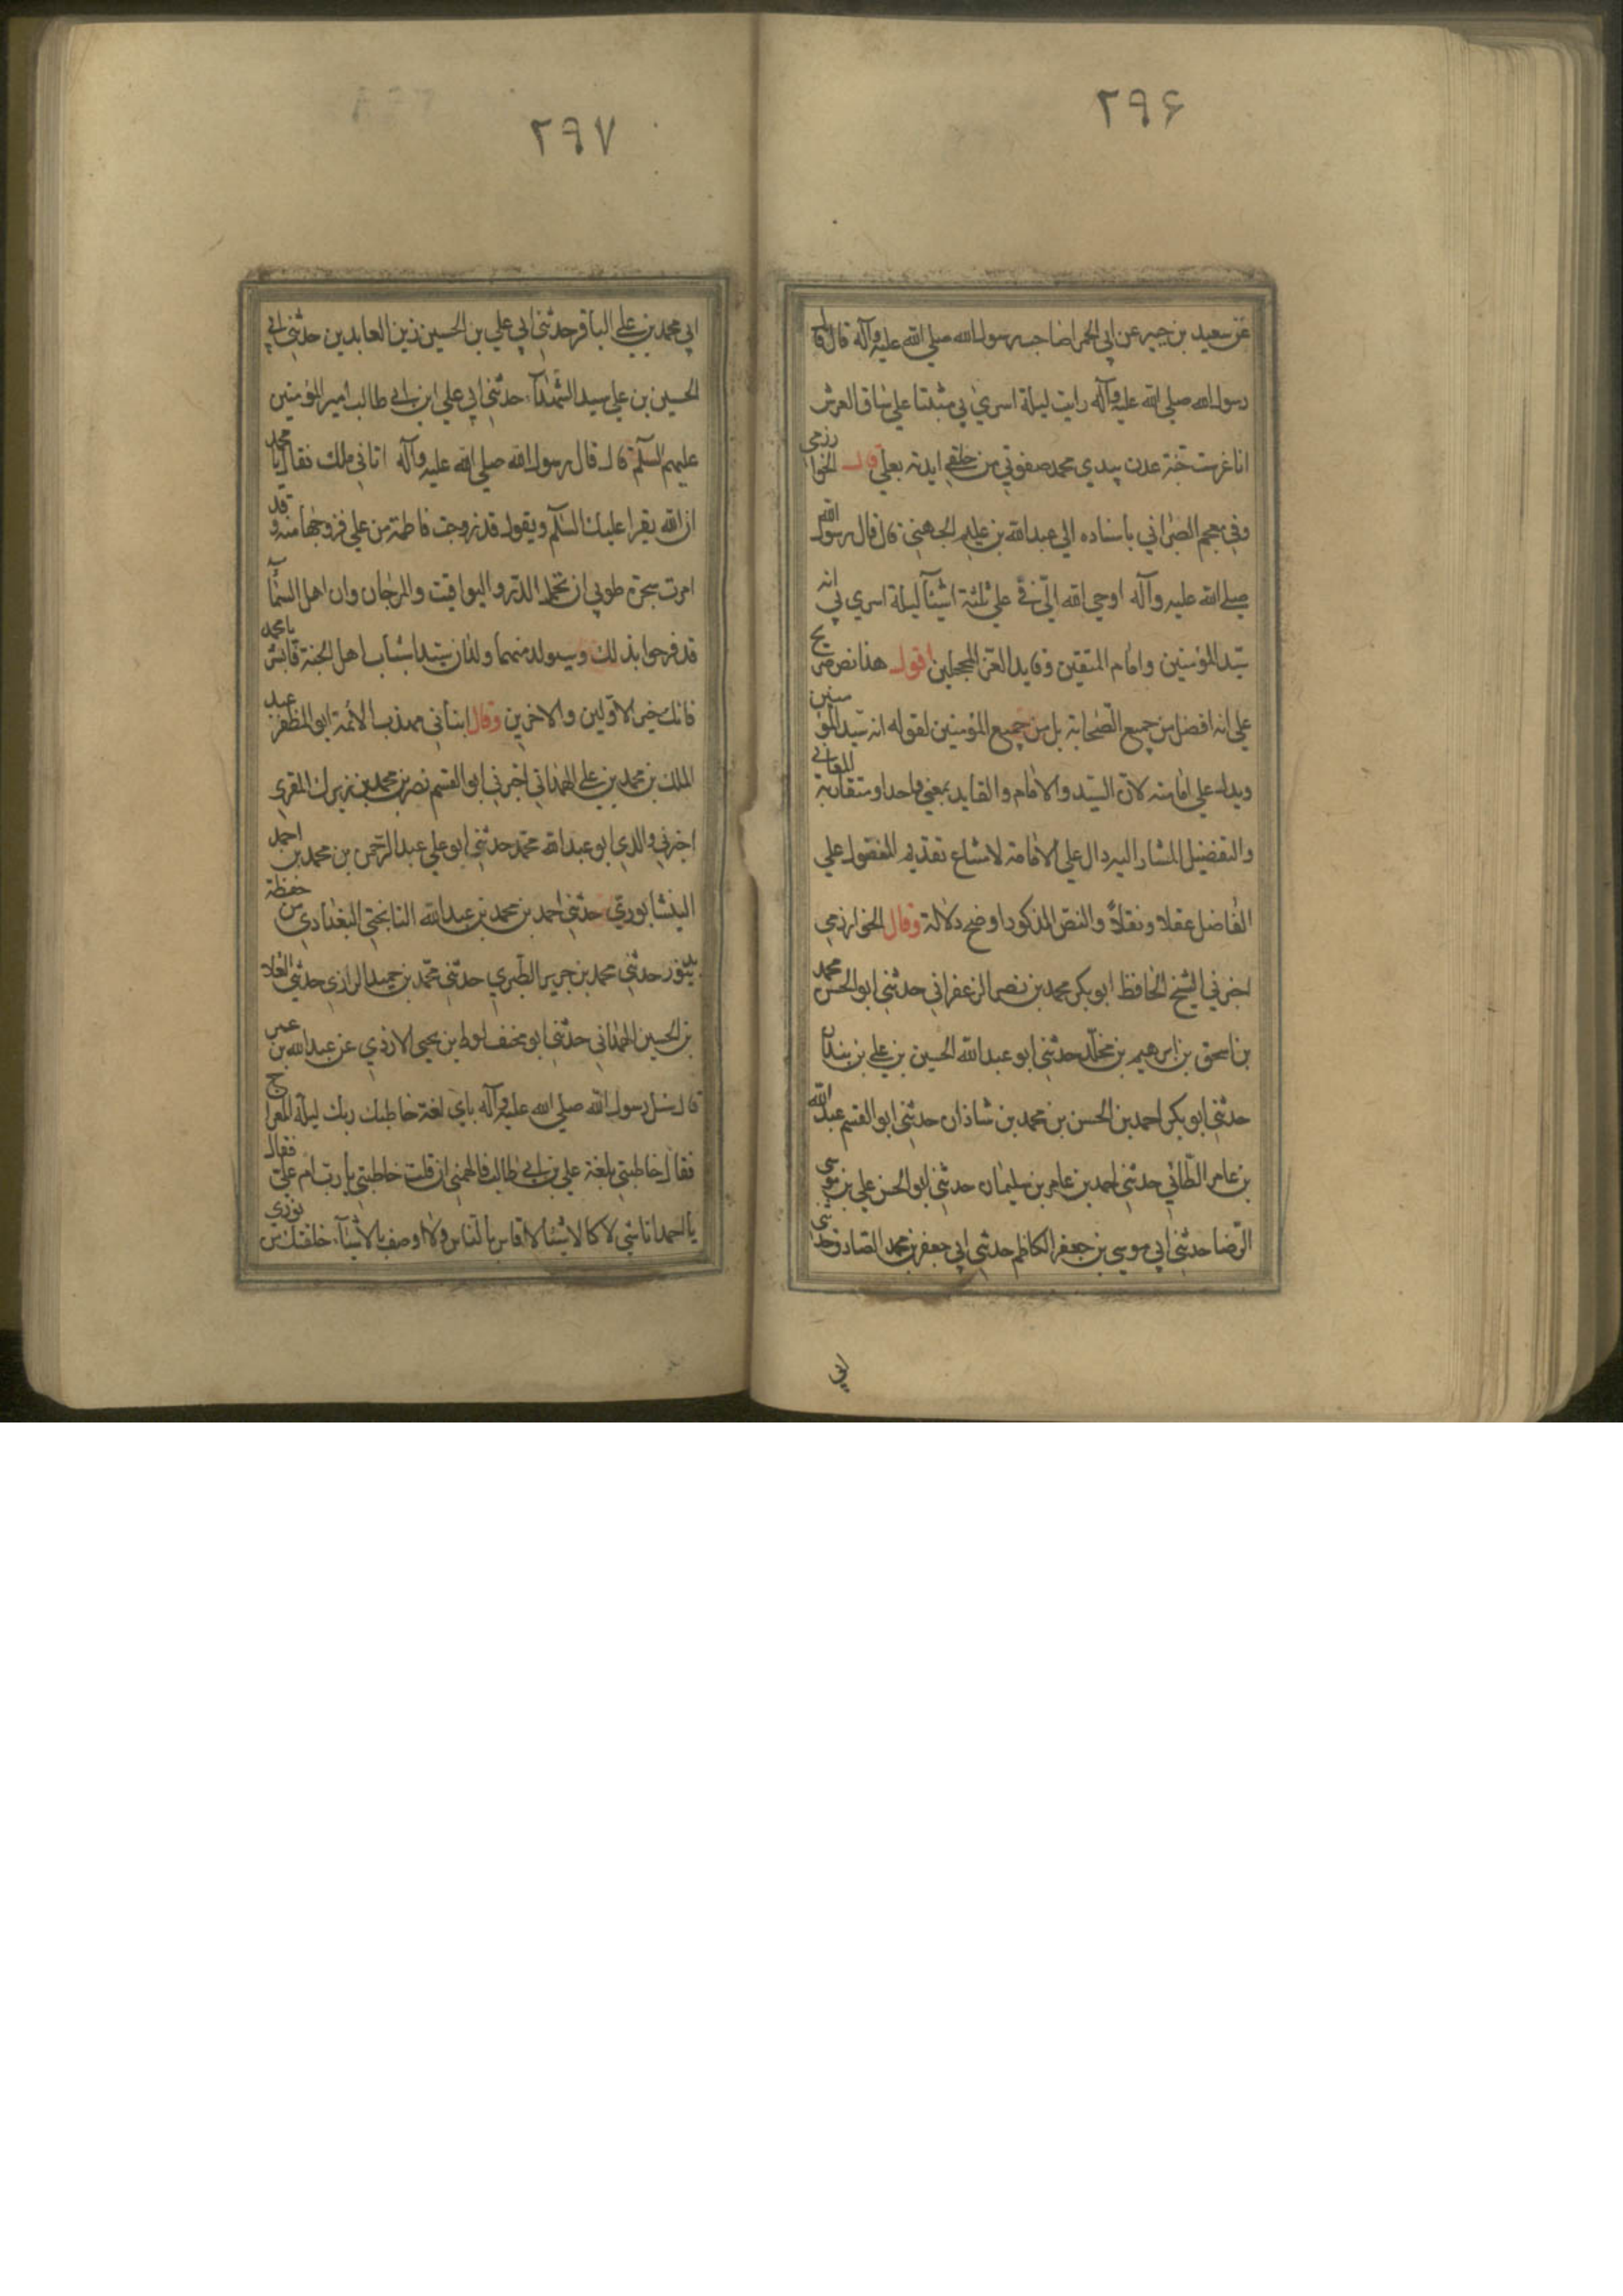 ٢٩۶
عن سعيد بن جبير عن ابي الحمرا صاحب رسول الله صلي الله عليه وآله قال قال
رسول الله صلي الله عليه وآله رايت ليلة اسري بي مثبتا علي ساق العرش
انا غرست جنة عدن بيدي محمد صفوتي من خلقي ايدته بعلي قال الخوارزمي
وفي معجم الطبراني باسناده الي عبدالله بن عليم الجهني قال قال رسول الله
صلي الله عليه وآله اوحي الله الي في علي ثلثة اشيآ ليلة اسري بي انه
سيد المؤمنين وامام المتقين وقايد الغر المحجلين اقول هذا نص صريح
علي انه افضل من جميع الصحابة بل من جميع المؤمنين لقوله انه سيد المؤمنين
ويدل علي امامته لان السيد والامام والقايد بمعني واحد او متقاربة المعاني
والتفضيل المشار اليه دال علي الامامة لامتناع تقديم المفضول علي
الفاضل عقلا ونقلاً والنص المذكور اوضح دلالة وقال الخوارزمي
اخبرني الشيخ الحافظ ابو بكر محمد بن نصر الزعفراني حدثني ابو الحسن محمد
بن اسحق بن ابرهيم بن مخلد حدثني ابو عبدالله الحسين بن علي بن بندار
حدثني ابو بكر احمد بن الحسن بن محمد بن شاذان حدثني ابو القسم عبدالله
بن عامر الطائي حدثني احمد بن عامر بن سليمان حدثني ابو الحسن علي بن موسي
الرضا حدثني ابي موسي بن جعفر الكاظم حدثني ابي جعفر بن محمد الصادق حدثني
ابي
٢٩٧
ابي محمد بن علي الباقر حدثني ابي علي بن الحسين زين العابدين حدثني ابي
الحسين بن علي سيد الشهدآء حدثني ابي علي ابن ابي طالب امير المؤمنين
عليهم السلم قال قال رسول الله صلي الله عليه وآله اتاني ملك فقال يا محمد
ان الله يقرا عليك السلم ويقول قد زوجت فاطمة من علي فزوجها منه وقد
امرت شجرة طوبي ان تحمل الدر واليواقيت والمرجان وان اهل السمآ
قد فرحوا بذلك وسيولد منهما ولدان سيدا شباب اهل الجنة فابشر يا محمد
فانك خير الاولين والاخرين وقال انباني مهذب الائمة ابو المظفر عبد
الملك بن محمد بن علي الهمداني اخبرني ابو القسم نصر بن محمد بن زيرك المقري
اخبرني والدي ابو عبدالله محمد حدثني ابو علي عبد الرحمن بن محمد بن احمد
النيشابوري حدثني احمد بن محمد بن عبدالله النانجتي البغدادي من حفظه
بدينور حدثني محمد بن جرير الطبري حدثني محمد بن حميد الرازي حدثني العلا
بن الحسين الهمداني حدثني ابو مخنف لوط بن يحيي الازدي عن عبدالله بن عمر
قال سئل رسول الله صلي الله عليه وآله باي لغة خاطبك ربك ليلة المعراج
فقال خاطبني بلغة علي بن ابي طالب فالهمني ان قلت خاطبتني يا رب ام علي فقال
يا احمد انا شي لا كالاشيا لا اقاس بالناس ولا اوصف بالاشيآء خلقتك من نوري